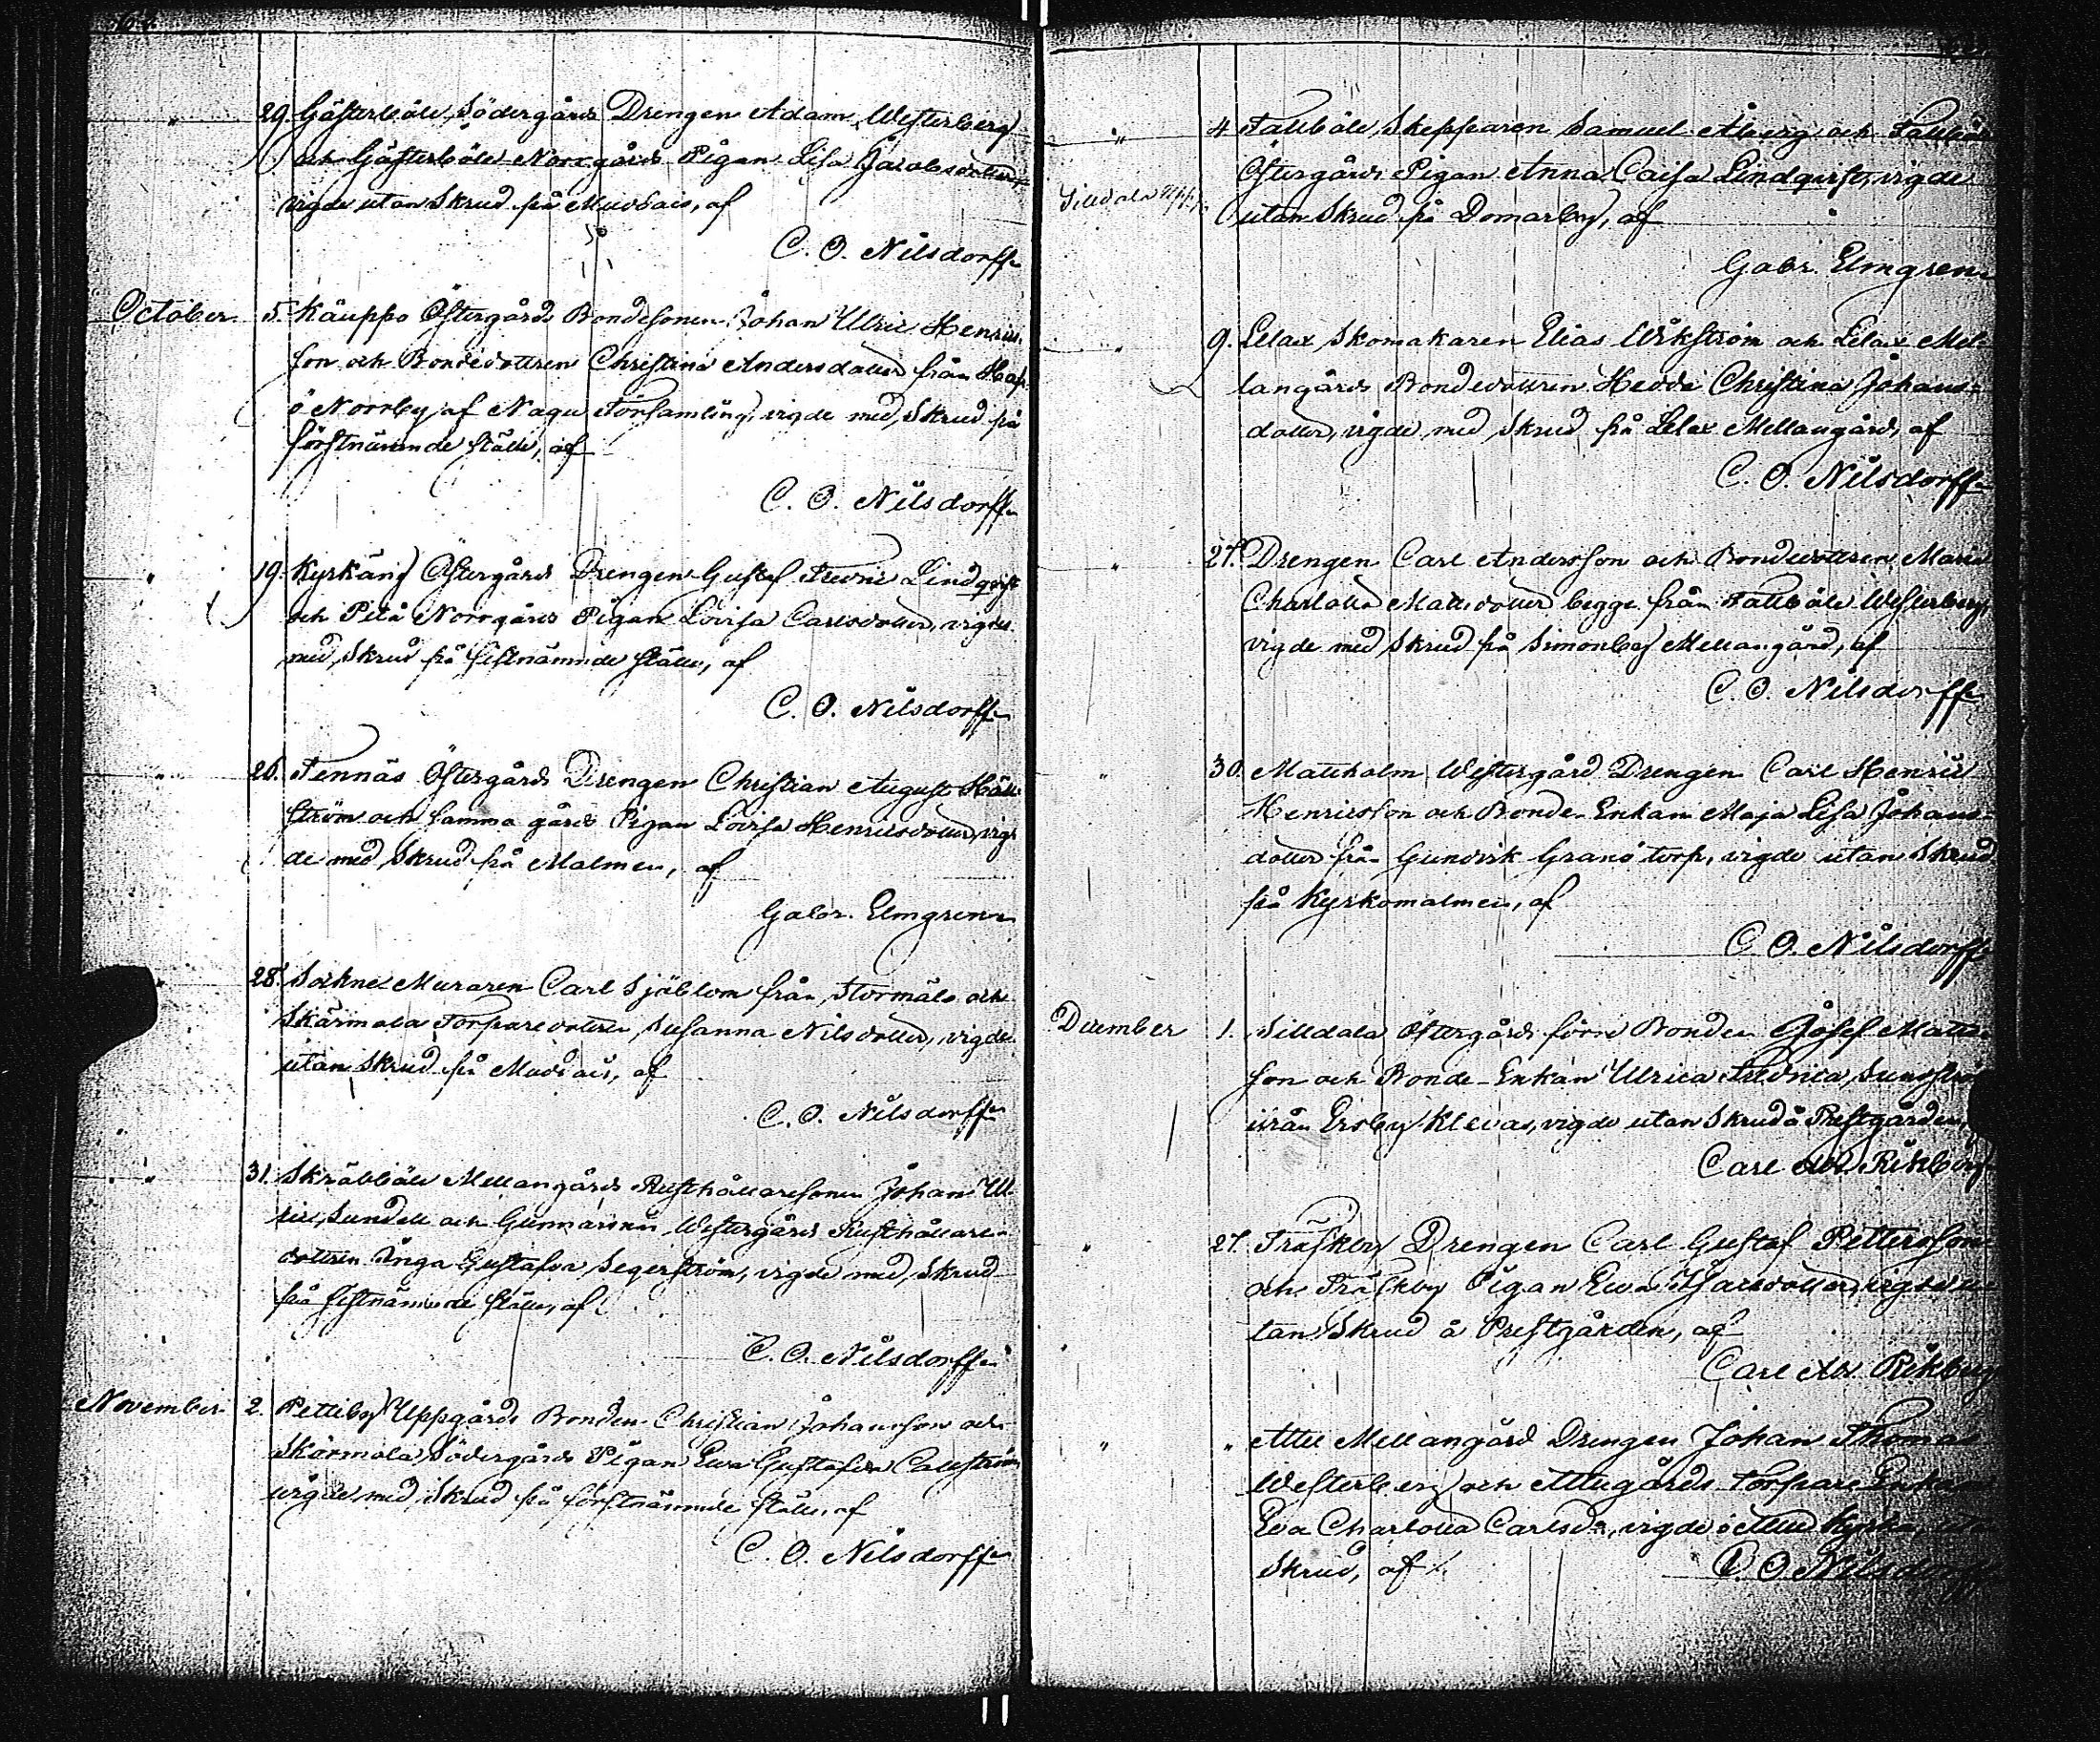 " 29. Gästerböle Södergårds Drengen Adam Westerberg
och Gästerböle Norrgårds Pigan Lisa Jacobsdotter
vigde utan Skrud på Muddais, af
C. O. Nilsdorff
October. 5. Käuppo Östergårds Bondesonen Johan Ulric Henrics-
son och Bondedottren Christina Andersdotter från
ö Norrby af Nagu Församling, vigde med Skrud på
förstnämnde ställe, af
C. O. Nilsdorff
" 19. Östergårds Drengen Gustaf Fredric Lindqvist
och Norrgårds Pigan Lovisa Carlsdotter, vigde
med Skrud på sistnämnde ställe, af
C. O. Nilsdorff
" 26. Tennäs Östergårds Drengen Christian August
ström och samma gårds Pigan Lovisa Henricsdotter, vig-
de med Skrud på Malmen, af
Gabr. Elmgren
" 28. Sockne Muraren Carl Sjöblom från Stormälö och
Skärmola Torparedottren Susanna Nilsdotter, vigde
utan Skrud på Muddais, af
C. O. Nilsdorff
" 31. Skräbböle Mellangårds Rusthållaresonen Johan Ul-
ric Sundell och Gunnarsnäs Westergårds Rusthållare-
dottren Inga Gustafva Segerström, vigde med Skrud
på sistnämnde ställe, af
C. O. Nilsdorff
November 2. Petteby Uppgårds Bonden Christian Johansson och
Skärmola Södergårds Pigan Eva Gustafva
vigde med Skrud på förstnämnde ställe, af
C. O. Nilsdorff
" 4. Fallböle Skepparen Samuel Åberg och Fallböle
Östergårds Pigan Anna Caisa Lindqvist, vigde
Silldala
utan Skrud på Domarby, af
Gabr. Elmgren
" 9. Lelax Skomakaren Elias Wikström och Lelax Mel-
langårds Bondedottren Hedda Christina Johans-
dotter, vigde med Skrud på Lelax Mellangård, af
C. O. Nilsdorff
" 27. Drengen Carl Andersson och Bondedottren Maria
Charlotta Mattsdotter begge från Fallböle Westerby,
vigde med Skrud på Simonby Mellangård, af
C. O. Nilsdorff
" 30. Mattholm Westergård Drengen Carl Henric
Henricsson och Bonde-Enkan Maja Lisa Johans-
dotter från Gundvik Granö torp, vigde utan Skrud
på Kyrkomalmen, af
C. O. Nilsdorff
December 1. Silldala Östergårds förre Bonden Josef Matts-
son och Bonde-Enkan Ulrica Fredrica Sundström
ifrån Ersby Klevas, vigde utan Skrud å Prestgården,
Carl Ad. Rikberg
" 27. Träskby Drengen Carl Gustaf Pettersson
och Träskby Pigan Eva vigde u-
tan Skrud å Prestgården, af
Carl Ad. Rikberg
" " Attu Mellangård Drengen Johan Thomas
Westerberg och Attugårds Torpare Enkan
Eva Charlotta Carlsd:r, vigde i Attu Kyrka,
Skrud, af C. O. Nilsdorff